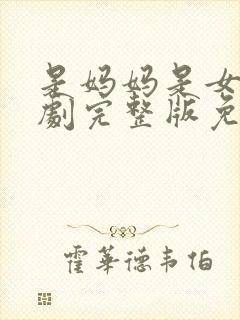 是妈妈是女
劇完整版免
霍華德韦伯